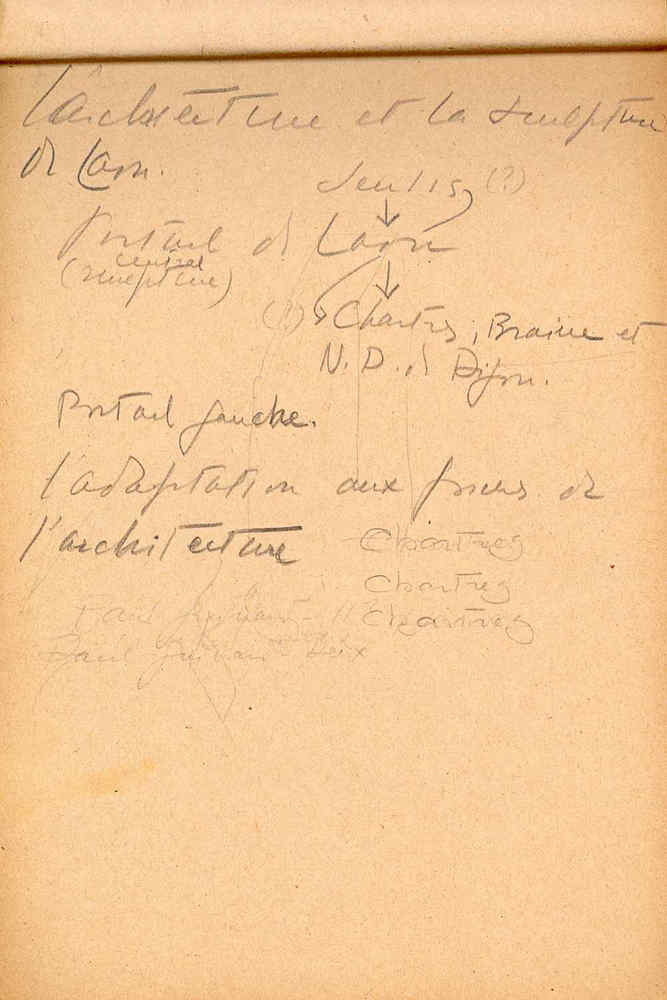 L'architecture et la sculpture
de Laon.
Senlis (?)
Portail de Laon
central
(sculpture)
(?) Chartres, Braine et
N. D. de Dijon.
Portail gauche.
l'adaptation aux formes de
l'architecture
Chartres
Chartres
Paul
Chartres
Paul